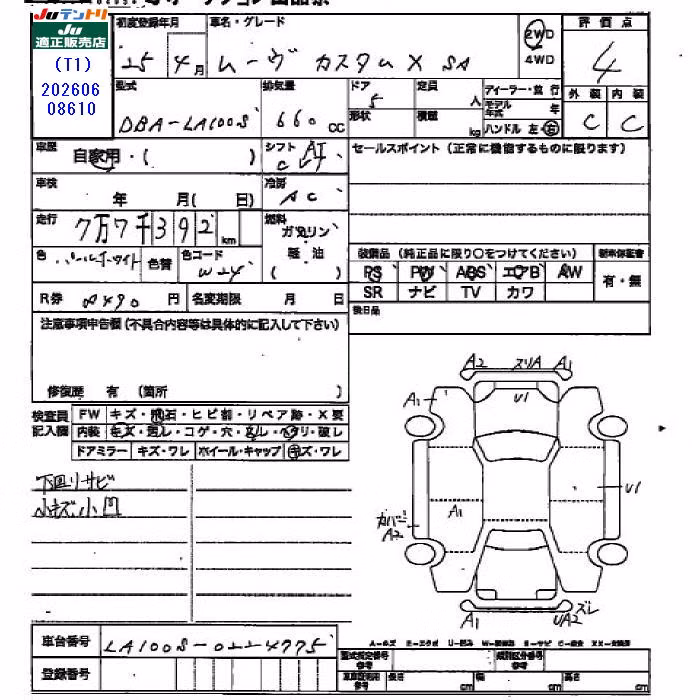 Juテントリ
JU
適正販売店
(T1)
202606
08610
初度登録年月
25年4月
車名・グレード
ムーヴ カスタム X SA
2WD
4WD
評価点
4
型式
DBA-LA100S
排気量
660 cc
ドア
5
形状
定員
人
積載
kg
ディーラー・並行
モデル年式 年
ハンドル 左・右
外装 内装
C C
車歴
自家用・( )
シフト
AT
C
セールスポイント(正常に機能するものに限ります)
車検
年 月( 日)
冷房
AC
走行
7万7千392km
燃料
ガソリン
軽・油
( )
色
パールホワイト
色替
色コード
W24
装備品(純正品に限り○をつけてください)
新車保証書
PS PW ABS エアB AW
有・無
SR ナビ TV カワ
R券
8490円
名変期限 月 日
後日品
注意事項申告欄(不具合内容等は具体的に記入して下さい)
修復歴 有 (箇所 )
検査員
記入欄
FW キズ・飛石・ヒビ割・リペア跡・X要
内装 キズ・汚レ・コゲ・穴・ヌレ・ヘタリ・破レ
ドアミラー キズ・ワレ ホイール・キャップ キズ・ワレ
下回リサビ
小キズ小凹
A2 スリA A1
A1
U1
U1
A1
カバー
A2
A1
UA2 ズレ
車台番号
LA100S-0224775
登録番号
型式指定番号
参考
類別区分番号
参考
長さ cm
幅 cm
高さ cm